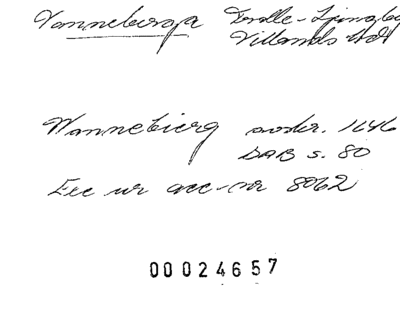 Vanneberga Trolle-Ljungby
Villands hd
Wannebierg avskr. 1646
DAB s. 80
Exc ur acc-nr 8062
00024657